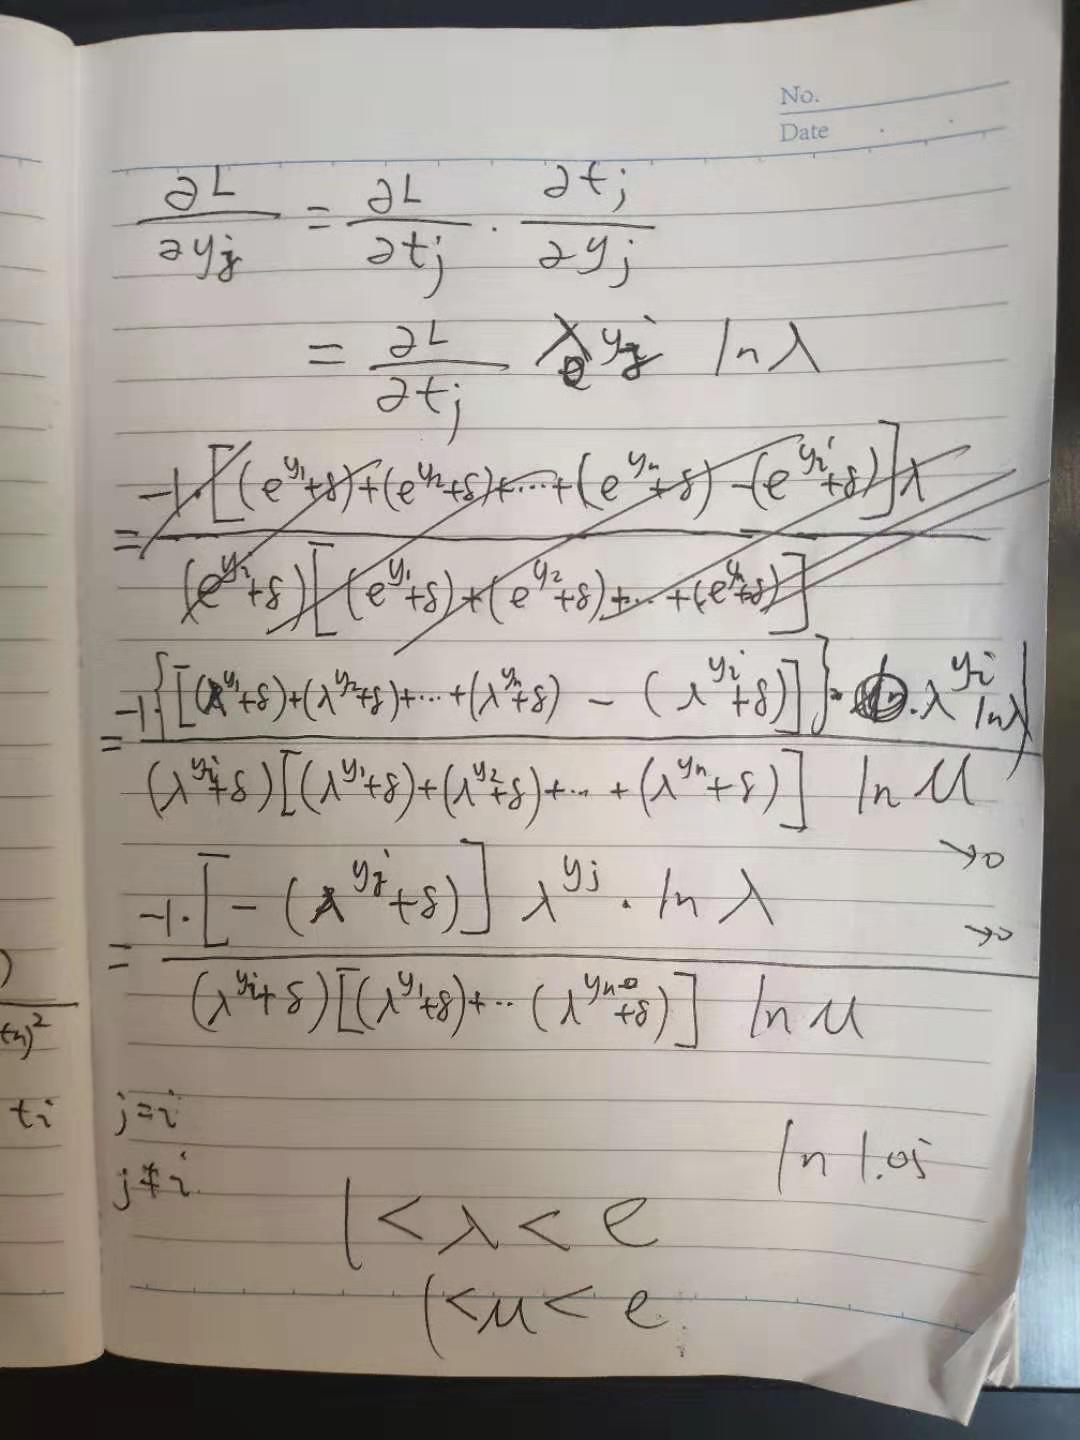 No.
Date
∂L/∂y_j = ∂L/∂t_j · ∂t_j/∂y_j
= ∂L/∂t_j λ^{y_j} ln λ
= -1·[(e^{y_1}+δ)+(e^{y_2}+δ)+···+(e^{y_n}+δ) - (e^{y_i}+δ)]λ / (e^{y_i}+δ)[(e^{y_1}+δ)+(e^{y_2}+δ)+···+(e^{y_n}+δ)]
= -1·{[(λ^{y_1}+δ)+(λ^{y_2}+δ)+···+(λ^{y_n}+δ) - (λ^{y_i}+δ)]}·λ^{y_i} ln λ / (λ^{y_i}+δ)[(λ^{y_1}+δ)+(λ^{y_2}+δ)+···+(λ^{y_n}+δ)] ln μ
→0
= -1·[-(λ^{y_j}+δ)] λ^{y_j} · ln λ / (λ^{y_i}+δ)[(λ^{y_1}+δ)+···(λ^{y_n}+δ)] ln μ
→0
)
tn)²
ti
j=i
j≠i
ln 1.05
1<λ<e
1<μ<e